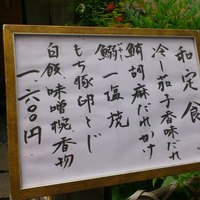 和定食
冷し茄子香味だれ
鯖胡麻だれかけ
鰯一塩焼
もち豚卵とじ
白飯、味噌椀、香物
一、六〇〇円